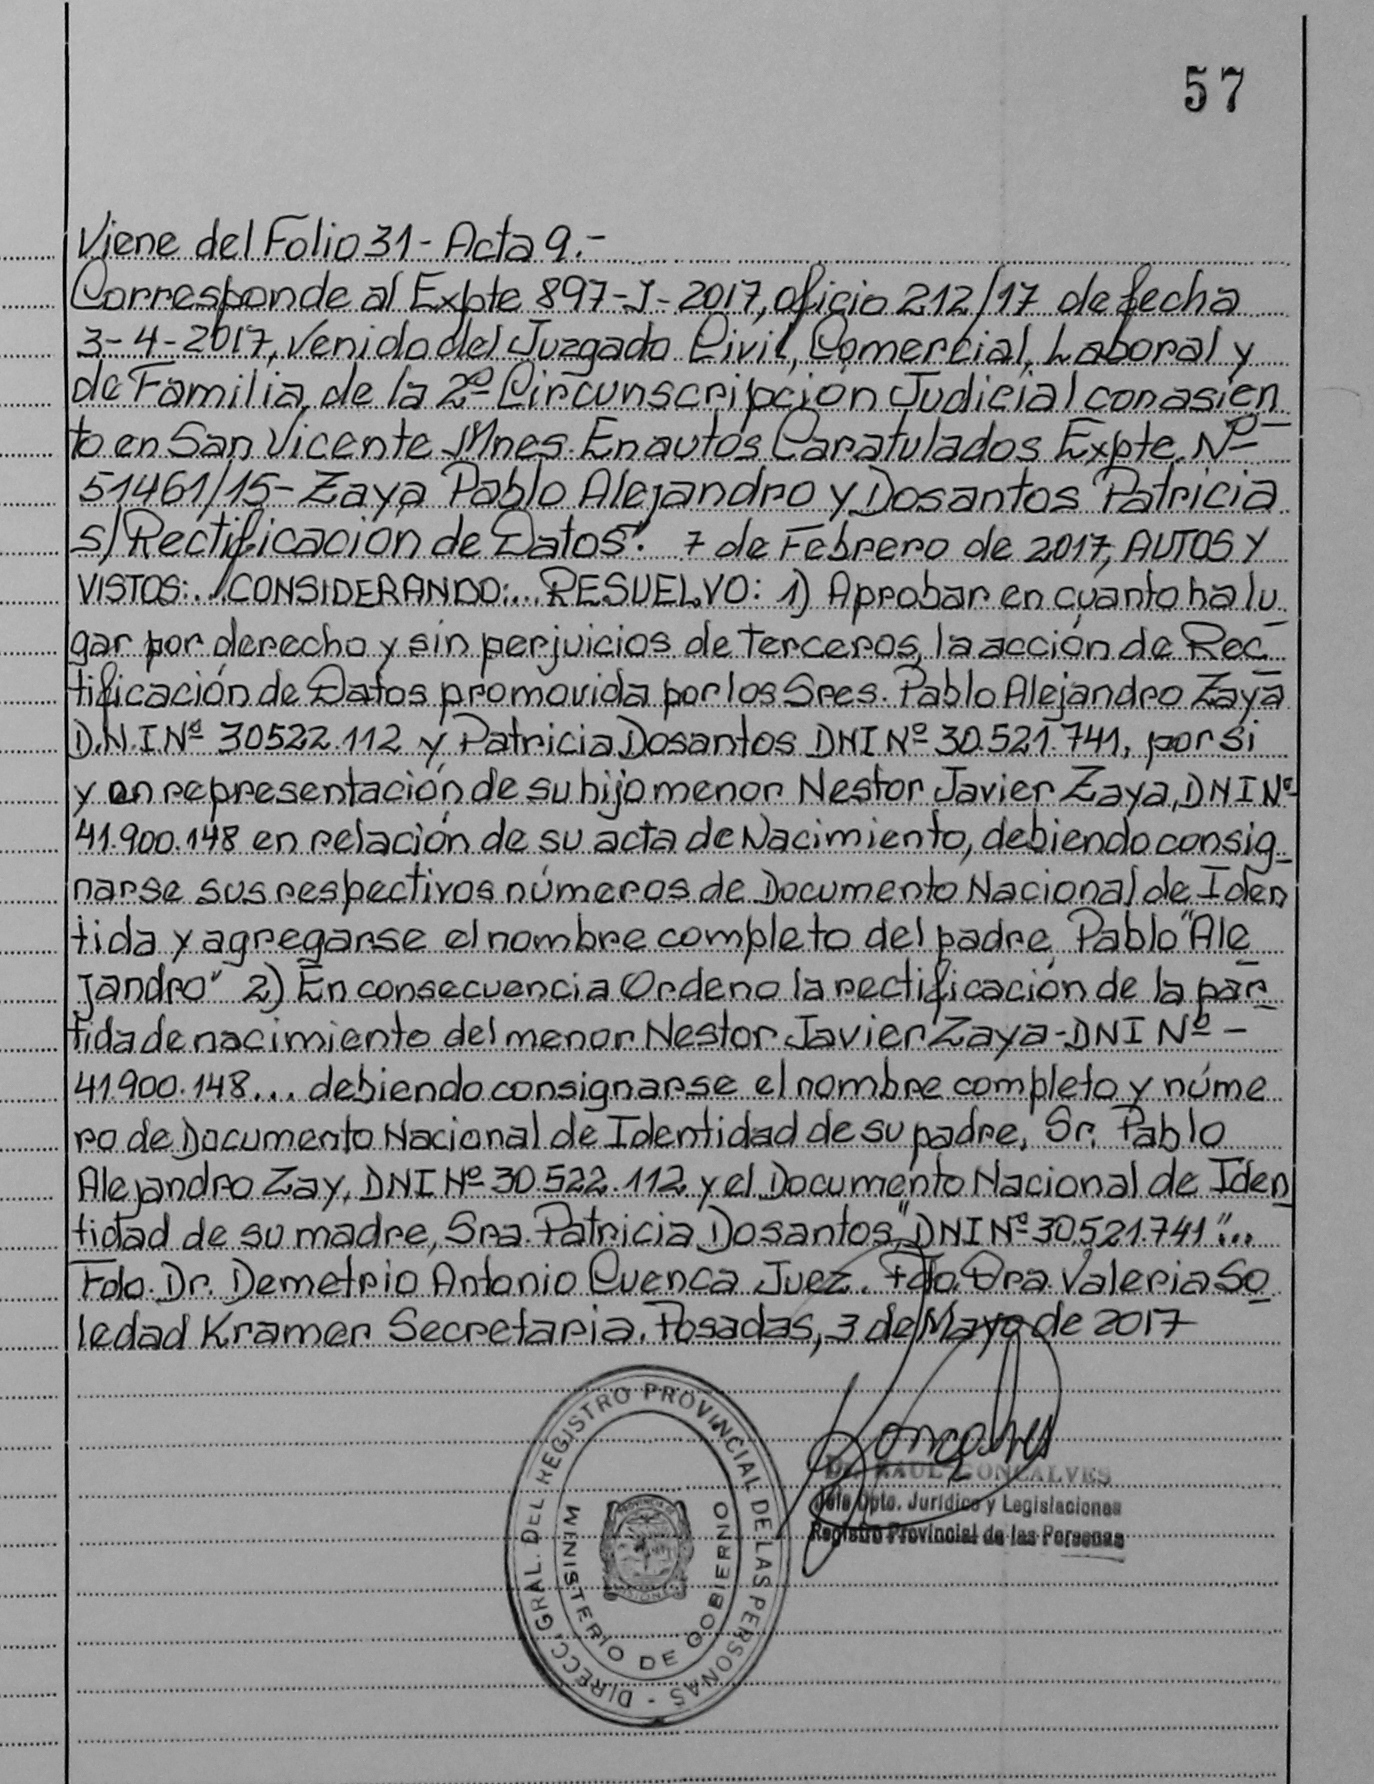 57
Viene del Folio 31- Acta 9.-
Corresponde al Expte 897-J-2017, oficio 212/17 de fecha
3-4-2017, venido del Juzgado Civil, Comercial, Laboral y
de Familia, de la 2º Circunscripción Judicial con asien
to en San Vicente Mnes. En autos Caratulados Expte. Nº
51461/15- Zaya Pablo Alejandro y Dosantos Patricia
s/ Rectificación de Datos". 7 de Febrero de 2017, AUTOS Y
VISTOS:../CONSIDERANDO:... RESUELVO: 1) Aprobar en cuanto ha lu
gar por derecho y sin perjuicios de terceros, la acción de Rec
tificación de Datos promovida por los Sres. Pablo Alejandro Zaya
D.N.I Nº 30522.112 y Patricia Dosantos DNI Nº 30.521.741, por si
y en representación de su hijo menor Nestor Javier Zaya, DNI Nº
41.900.148 en relación de su acta de Nacimiento, debiendo consig-
narse sus respectivos números de Documento Nacional de Iden
tida y agregarse el nombre completo del padre Pablo "Ale
jandro" 2) En consecuencia Ordeno la rectificación de la par
tida de nacimiento del menor Nestor Javier Zaya-DNI Nº -
41.900.148... debiendo consignarse el nombre completo y núme
ro de Documento Nacional de Identidad de su padre, Sr. Pablo
Alejandro Zay, DNI Nº 30.522.112 y el Documento Nacional de Iden
tidad de su madre, Sra. Patricia Dosantos, "DNI Nº 30.521.741"...
Fdo. Dr. Demetrio Antonio Cuenca Juez. Fdo. Dra. Valeria So
ledad Kramer Secretaria. Posadas, 3 de Mayo de 2017
Dr. RAUL GONCALVES
Jefe Dpto. Jurídico y Legislaciones
Registro Provincial de las Personas
DIRECC. GRAL. DEL REGISTRO PROVINCIAL DE LAS PERSONAS -
MINISTERIO DE GOBIERNO